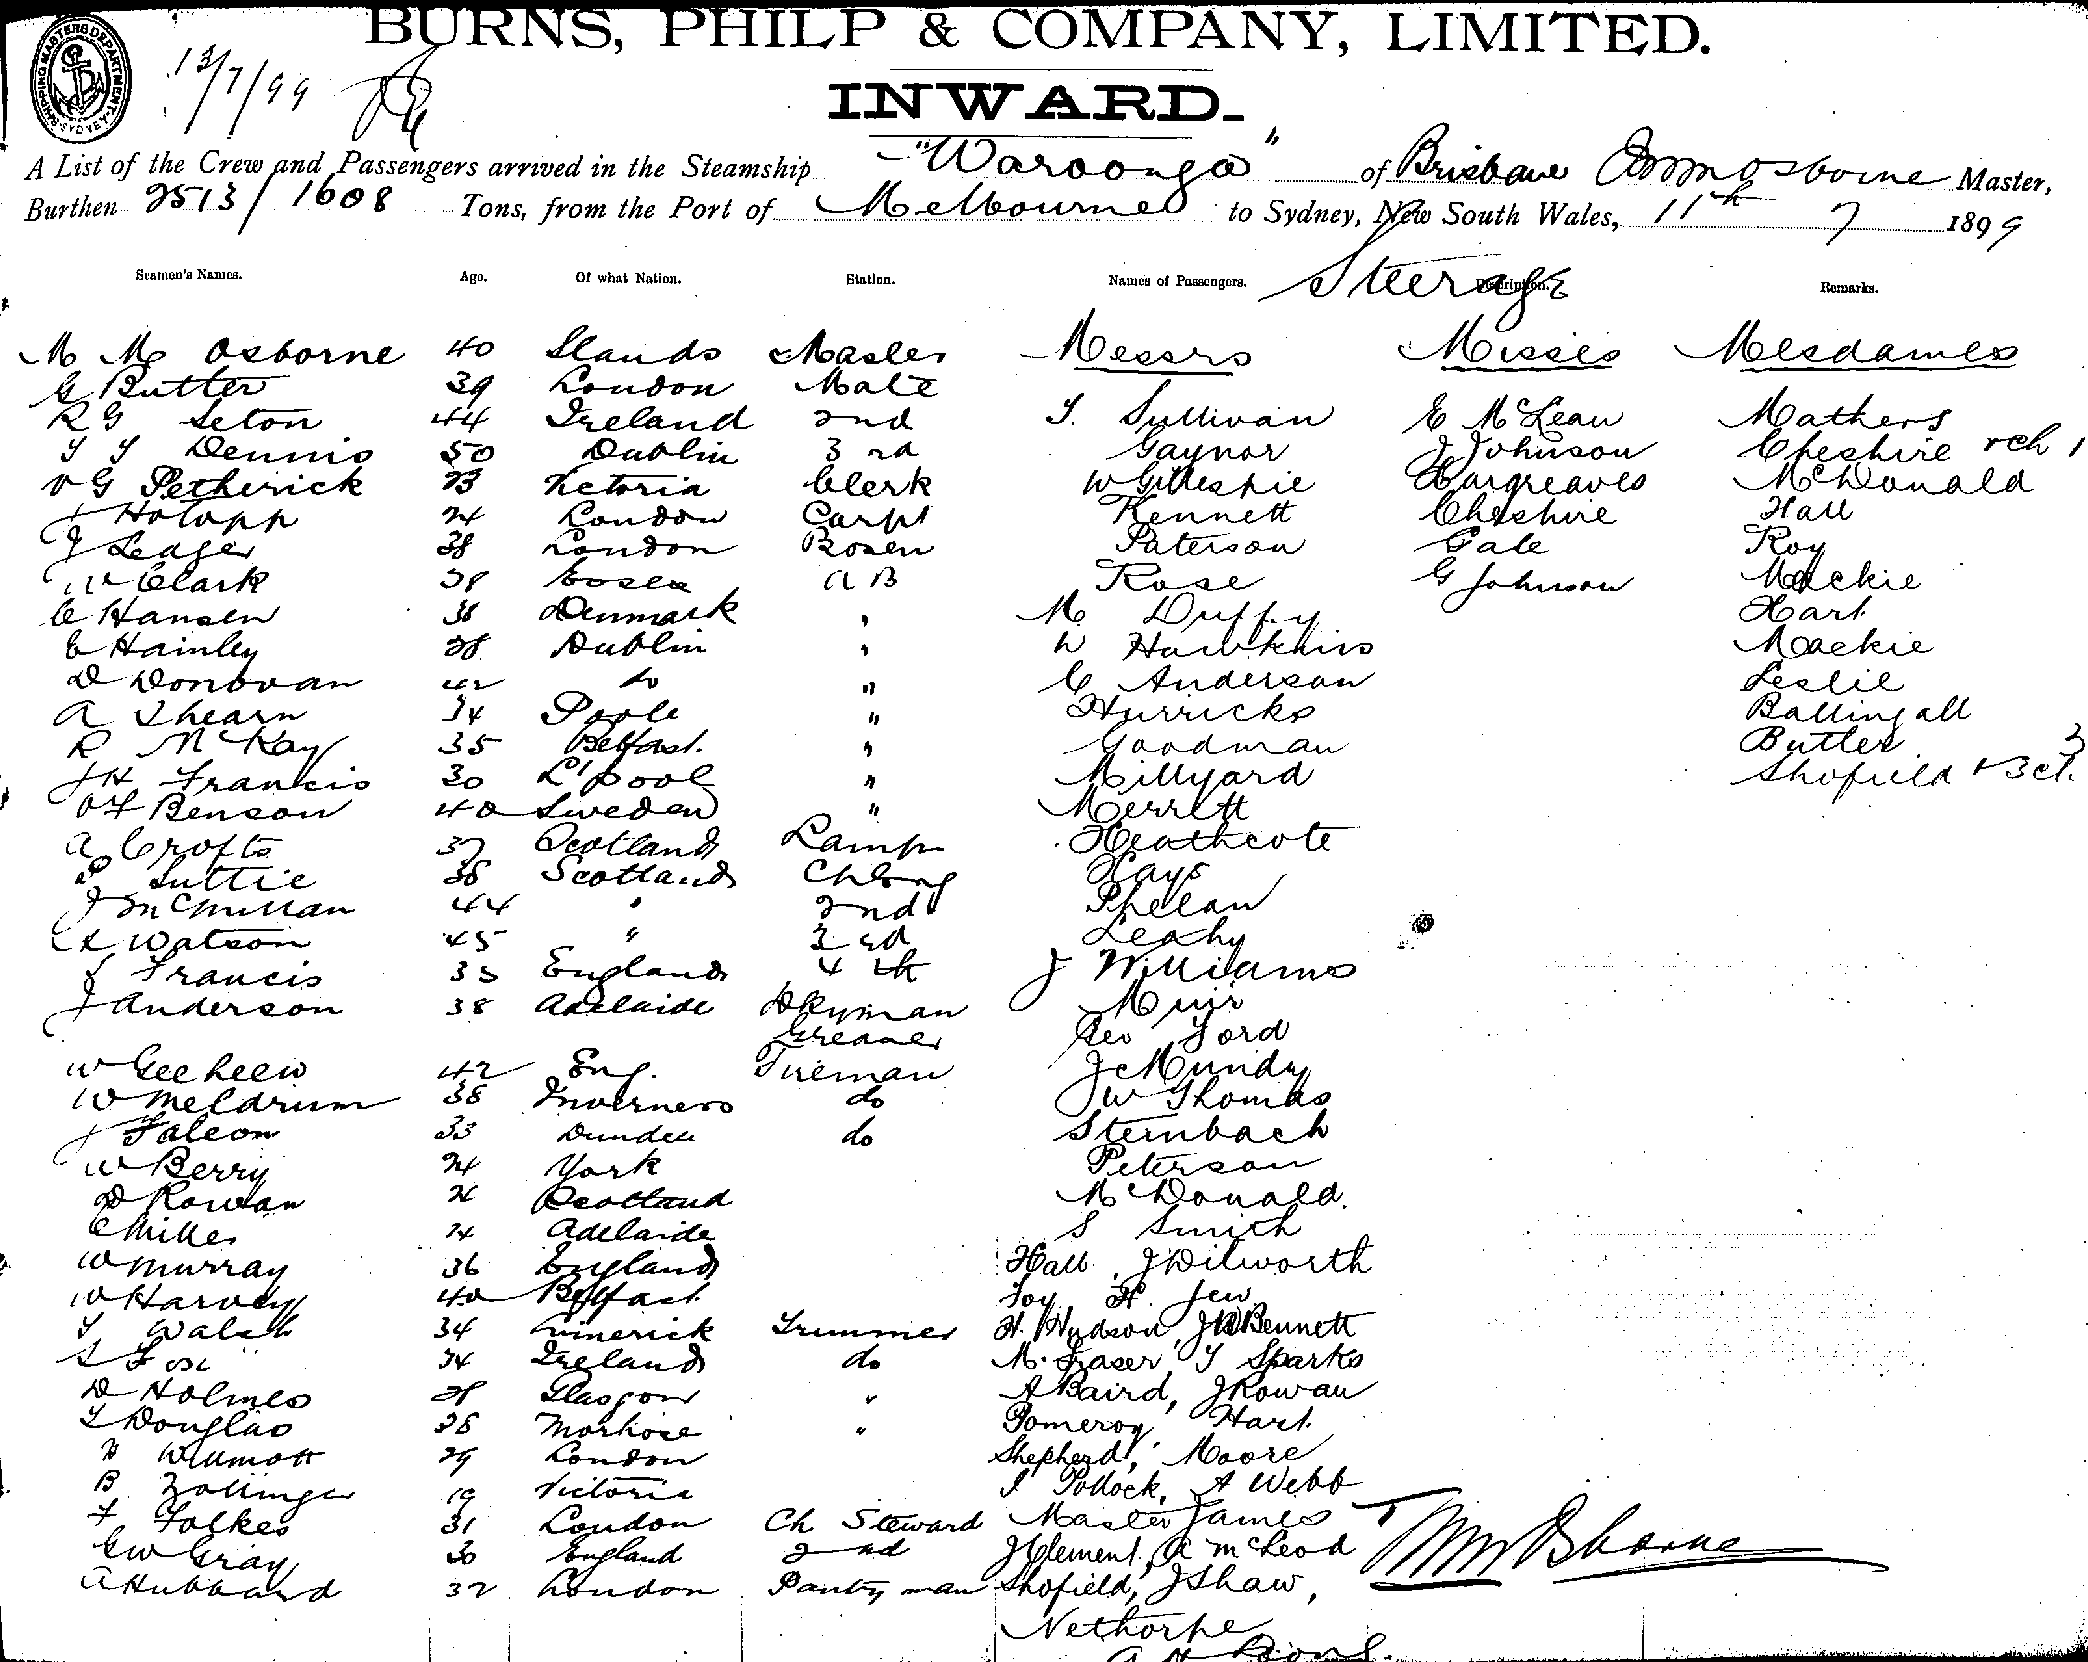 BURNS, PHILP & COMPANY, LIMITED.
SHIPPING MASTERS DEPARTMENT SYDNEY
13/7/99
INWARD.
A List of the Crew and Passengers arrived in the Steamship "Waroonga" of Brisbane Osborne Master,
Burthen 2513/1608 Tons, from the Port of Melbourne to Sydney, New South Wales, 11th 7 1899
Seamen's Names. Age. Of what Nation. Station. Names of Passengers. Steerage Description. Remarks.
M M Osborne 40 Master Messrs Misses Mesdames
G Butter 39 London Mate
R G Seton 44 Ireland 2nd T. Sullivan E McLean Mathers
Dennis 50 Dublin 3rd Gaynor J Johnson Cheshire + ch 1
V G Petherick 23 Victoria Clerk W Gillespie Hargreaves McDonald
Holopp 24 London Carpt Kennett Cheshire Hall
J Ledger 38 London Bosen Paterson Gale Roy
W Clark A B Rose G Johnson Mackie
C Hansen Denmark " M Duffy Hart
C Hainley 28 Dublin " W Hawkins Mackie
D Donovan 42 do " C Anderson Leslie
A Shearn 34 Poole " Hurricks Ballingall
R McKay 35 Belfast " Goodman Butler
J H Francis 30 L'pool " Millyard Shofield + 3 ch.
Benson 40 Sweden " Merrett
A Crofts 37 Scotland Lamp Heathcote
Suttie 38 Scotland Ch Eng Hays
J McMillan 44 " 2nd Phelan
Watson 45 " 3rd Leahy
Francis 33 England 4th J Williams
J Anderson 38 Adelaide Dkyman Muir
Greaser Geo Ford
W 42 Eng. Fireman J C Mundy
W Meldrum 38 Inverness do J W Thomas
J Falcon 33 Dundee do Sternbach
W Berry 24 York Peterson
D Rowan Scotland McDonald.
C Miller 24 Adelaide S Smith
W Murray 36 England Hall, J Dilworth
W Harvey 40 Belfast Foy H. Jew
T Walsh 34 Limerick Trimmer H. Hudson, J W Bennett
Fox 24 Ireland do M. Fraser, T Sparks
D Holmes 28 Glasgow " A Baird, J Rowan
T Douglas 28 " Pomeroy, Hart.
H Willmott 29 London Shepherd, Moore
B Zollinger 19 Victoria Pollock, A Webb
F Folkes 31 London Ch Steward Master James
G W Gray 30 England 2nd J Clement, A McLeod
A Hubbard 32 London Pantry man Shofield, J Shaw,
Nethorpe